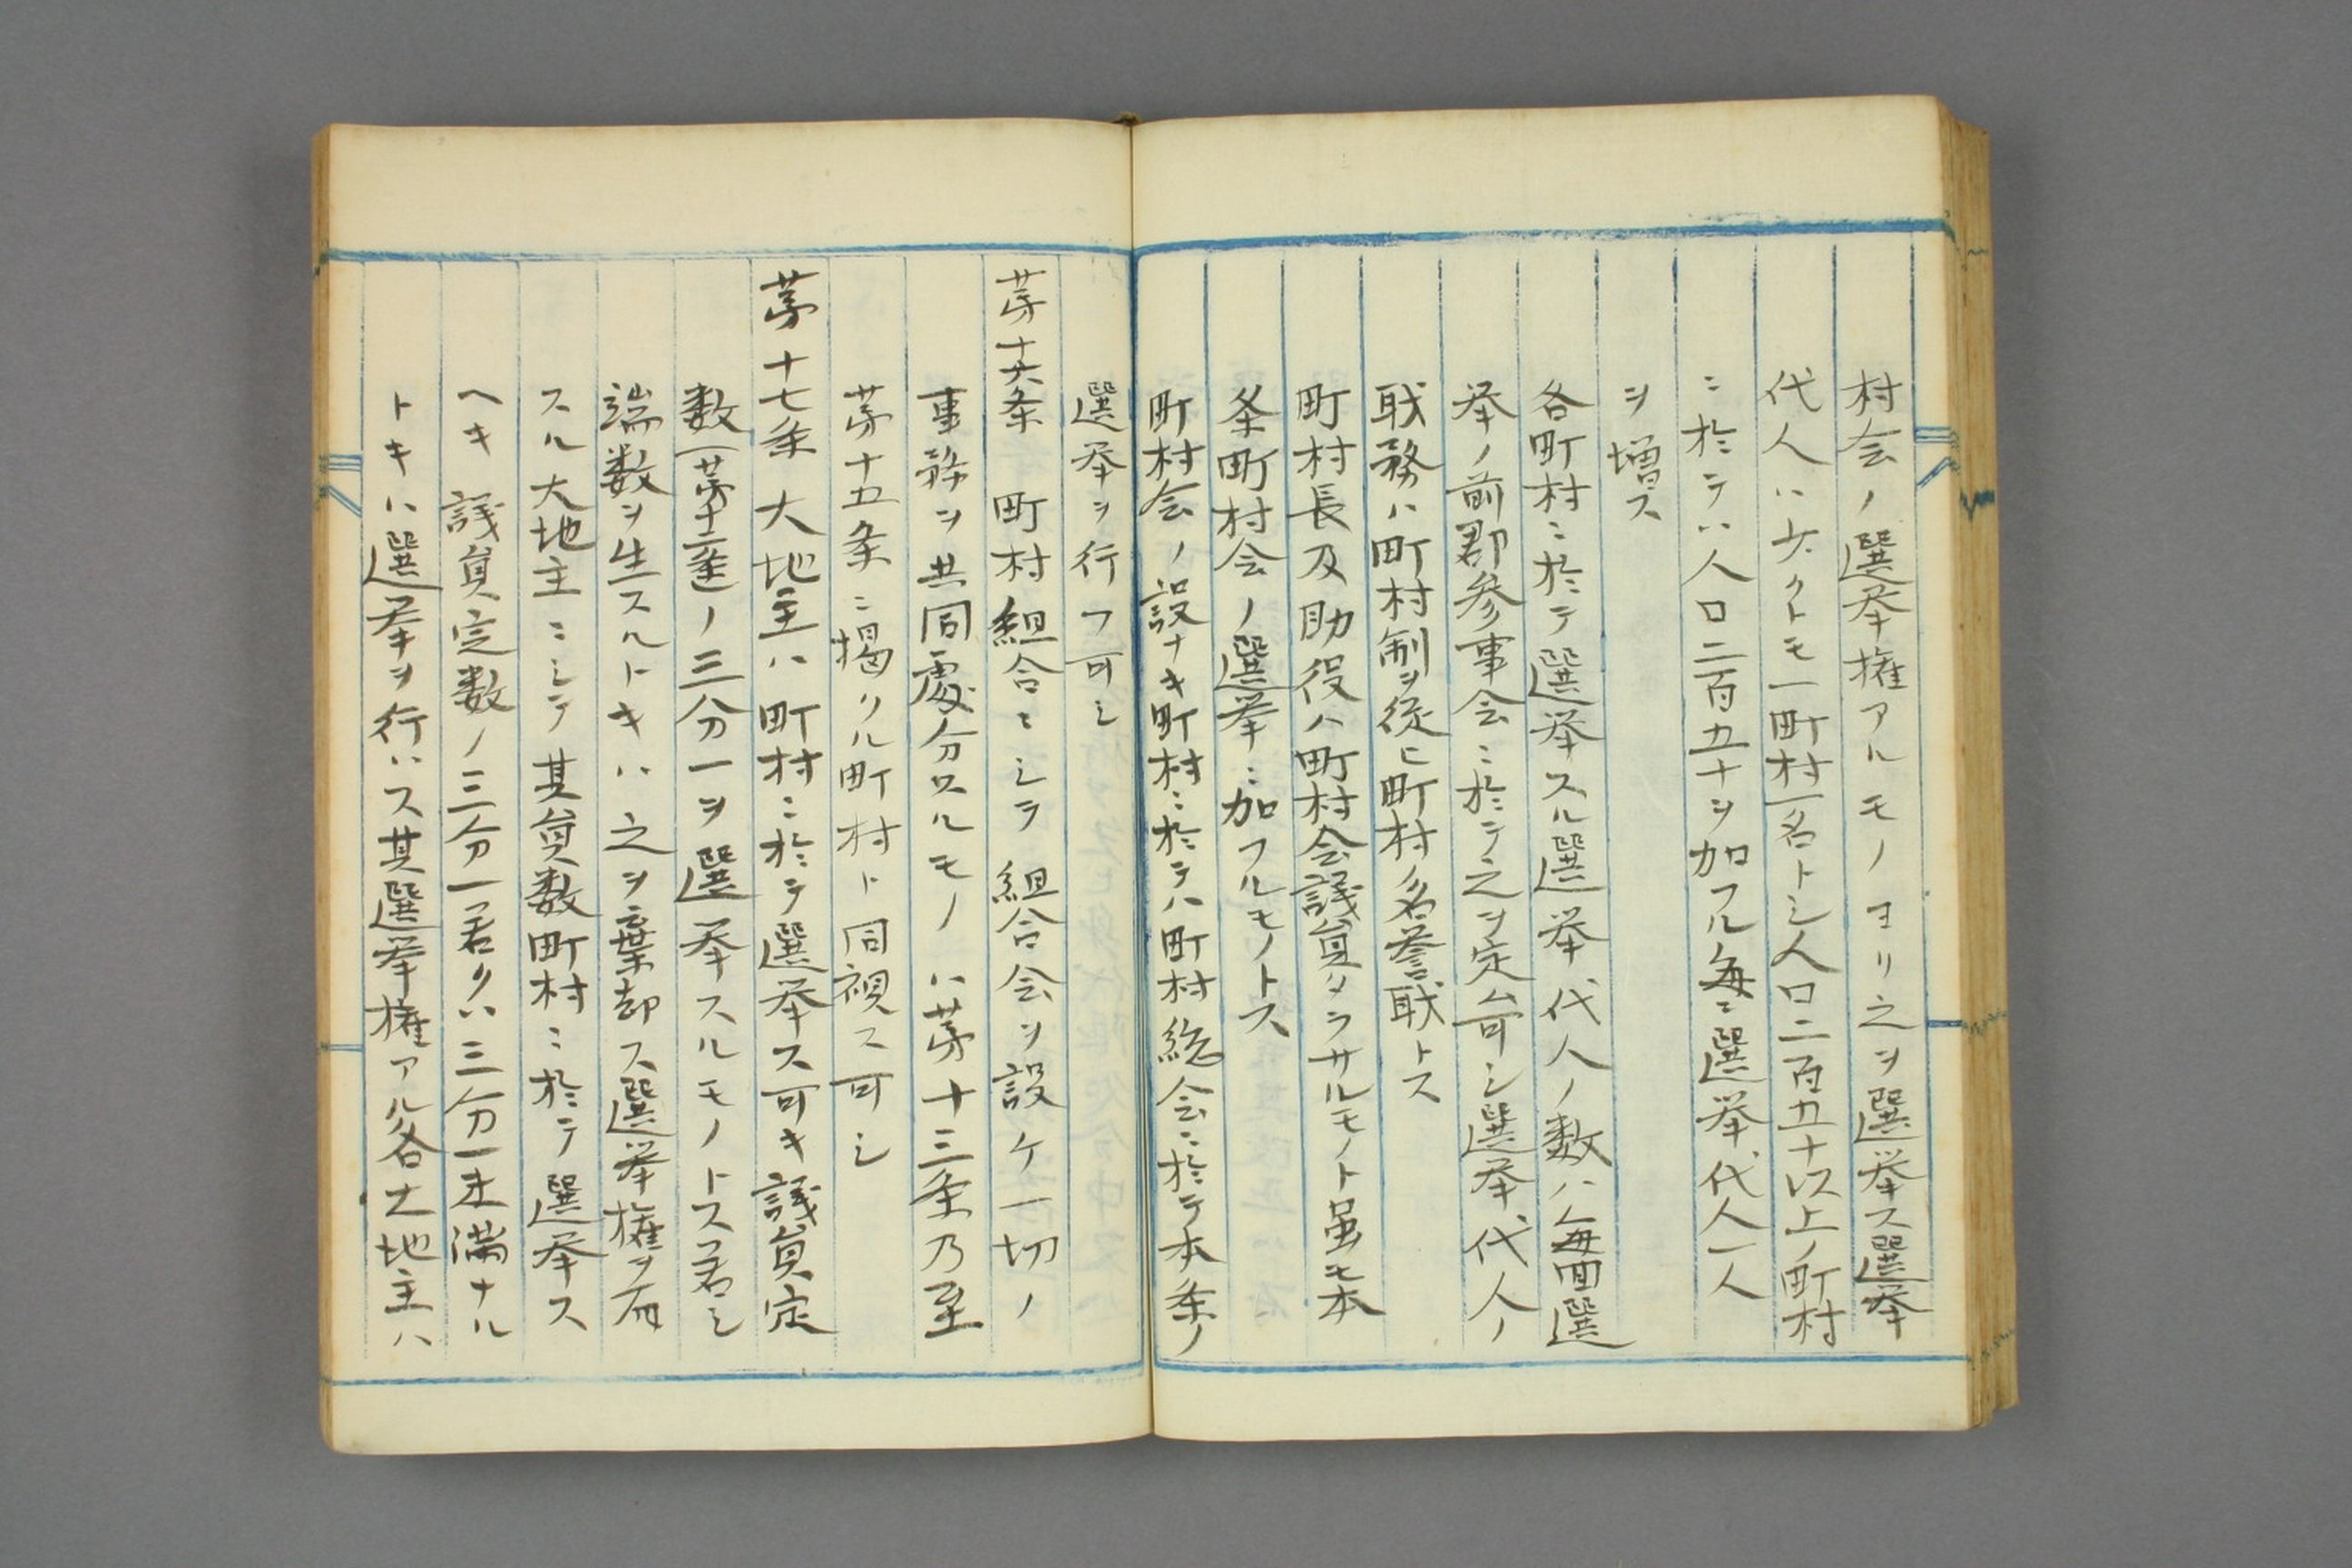 村会ノ選挙権アルモノヨリ之ヲ選挙ス選挙
代人ハ少クトモ一町村一名トシ人口二百五十以上ノ町村
ニ於テハ人口二百五十ヲ加フル毎ニ選挙代人一人
ヲ増ス
各町村ニ於テ選挙スル選挙代人ノ数ハ毎回選
挙ノ前郡参事会ニ於テ之ヲ定ム可シ選挙代人ノ
職務ハ町村制ヲ従ヒ町村ノ名誉職トス
町村長及助役ハ町村会議員タラサルモノト虽モ本
条町村会ノ選挙ニ加フルモノトス
町村会ノ設ナキ町村ニ於テハ町村総会ニ於テ本条ノ
選挙ヲ行フ可シ
第十六条 町村組合ニシテ組合会ヲ設ケ一切ノ
事務ヲ共同処分スルモノハ第十三条乃至
第十五条ニ掲クル町村ト同視ス可シ
第十七条 大地主ハ町村ニ於テ選挙ス可キ議員定
数(第十二条)ノ三分一ヲ選挙スルモノトス若シ
端数ヲ生スルトキハ之ヲ棄却ス選挙権ヲ有
スル大地主ニシテ其員数町村ニ於テ選挙ス
ヘキ議員定数ノ三分一若クハ三分一未満ナル
トキハ選挙ヲ行ハス其選挙権アル各大地主ハ